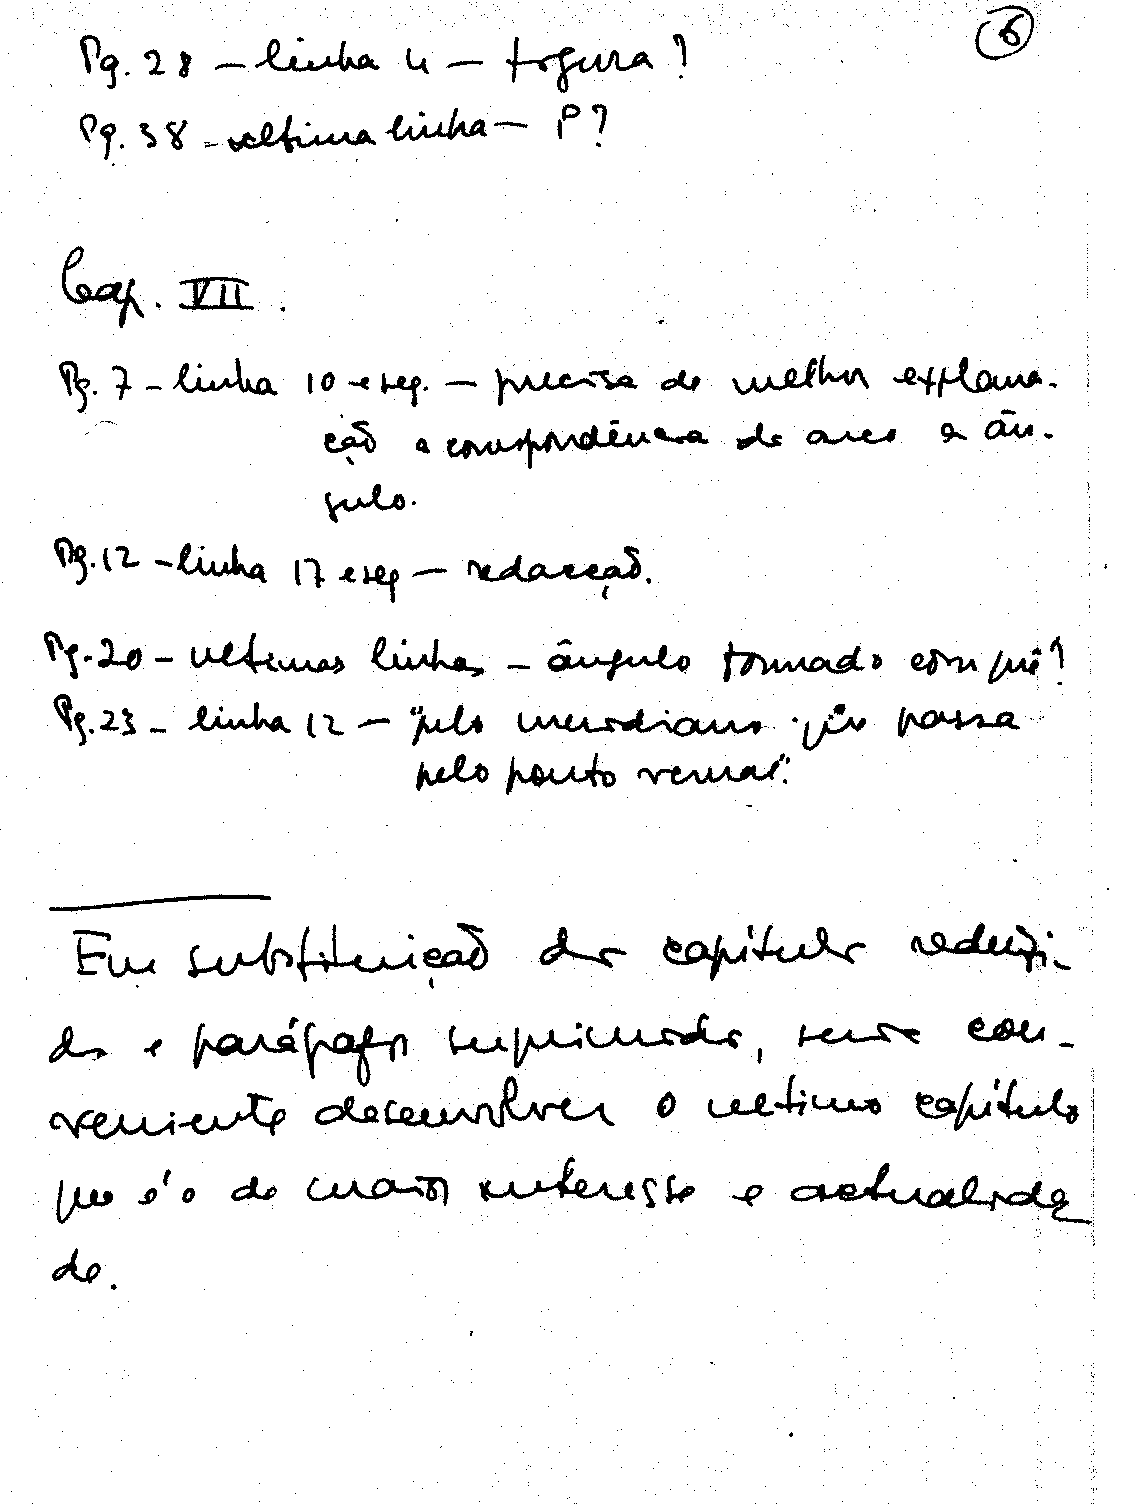 6
Pg. 28 – linha 4 – togura?
Pg. 38 – ultima linha – P?
Cap. VII.
Pg. 7 – linha 10 e seg. – precisa de melhor explana-
ção a correspondência de arco a ân-
gulo.
Pg. 12 – linha 17 e seg – redacção.
Pg. 20 – ultimas linhas – ângulo formado com quê?
Pg. 23 – linha 12 – "pelo meridiano que passa
pelo ponto vernal".
Em substituição dos capítulos reduzi-
dos e parágrafos suprimidos, seria con-
veniente desenvolver o ultimo capítulo
que é o de maior interesse e actualida
de.